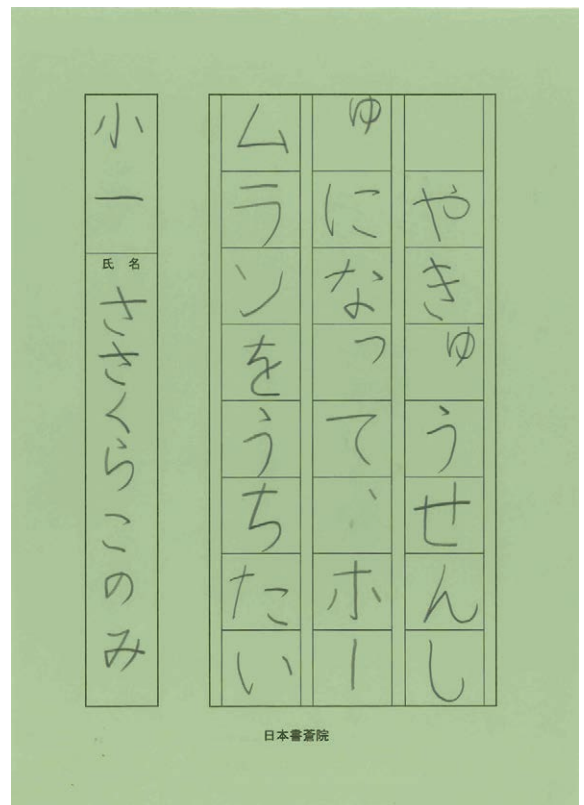 やきゅうせんし
ゅになって、ホー
ムランをうちたい
小一
氏名
ささくらこのみ
日本書蒼院